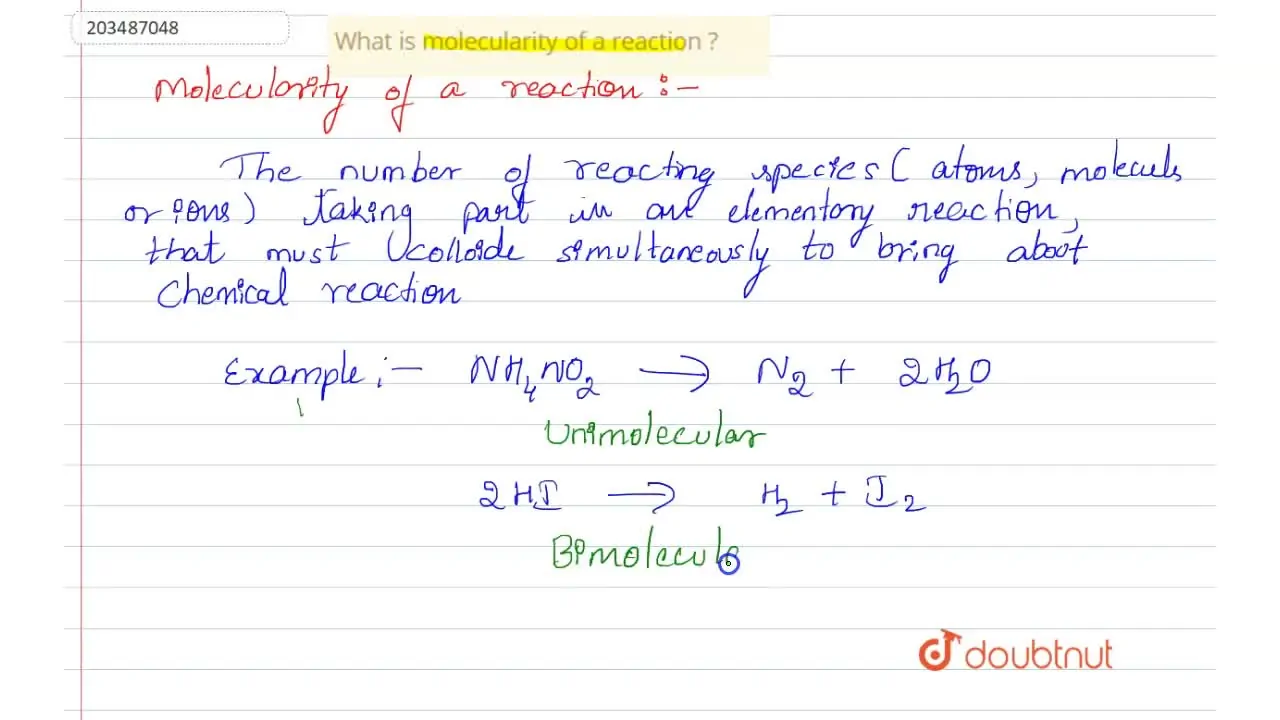 203487048
What is molecularity of a reaction ?
Molecularity of a reaction :-
The number of reacting species ( atoms, molecules
or ions ) taking part in an elementory reaction,
that must Ucolloide simultaneously to bring about
Chemical reaction
Example ;- NH4NO2 → N2 + 2H2O
Unimolecular
2HI → H2 + I2
Bimolecula
doubtnut